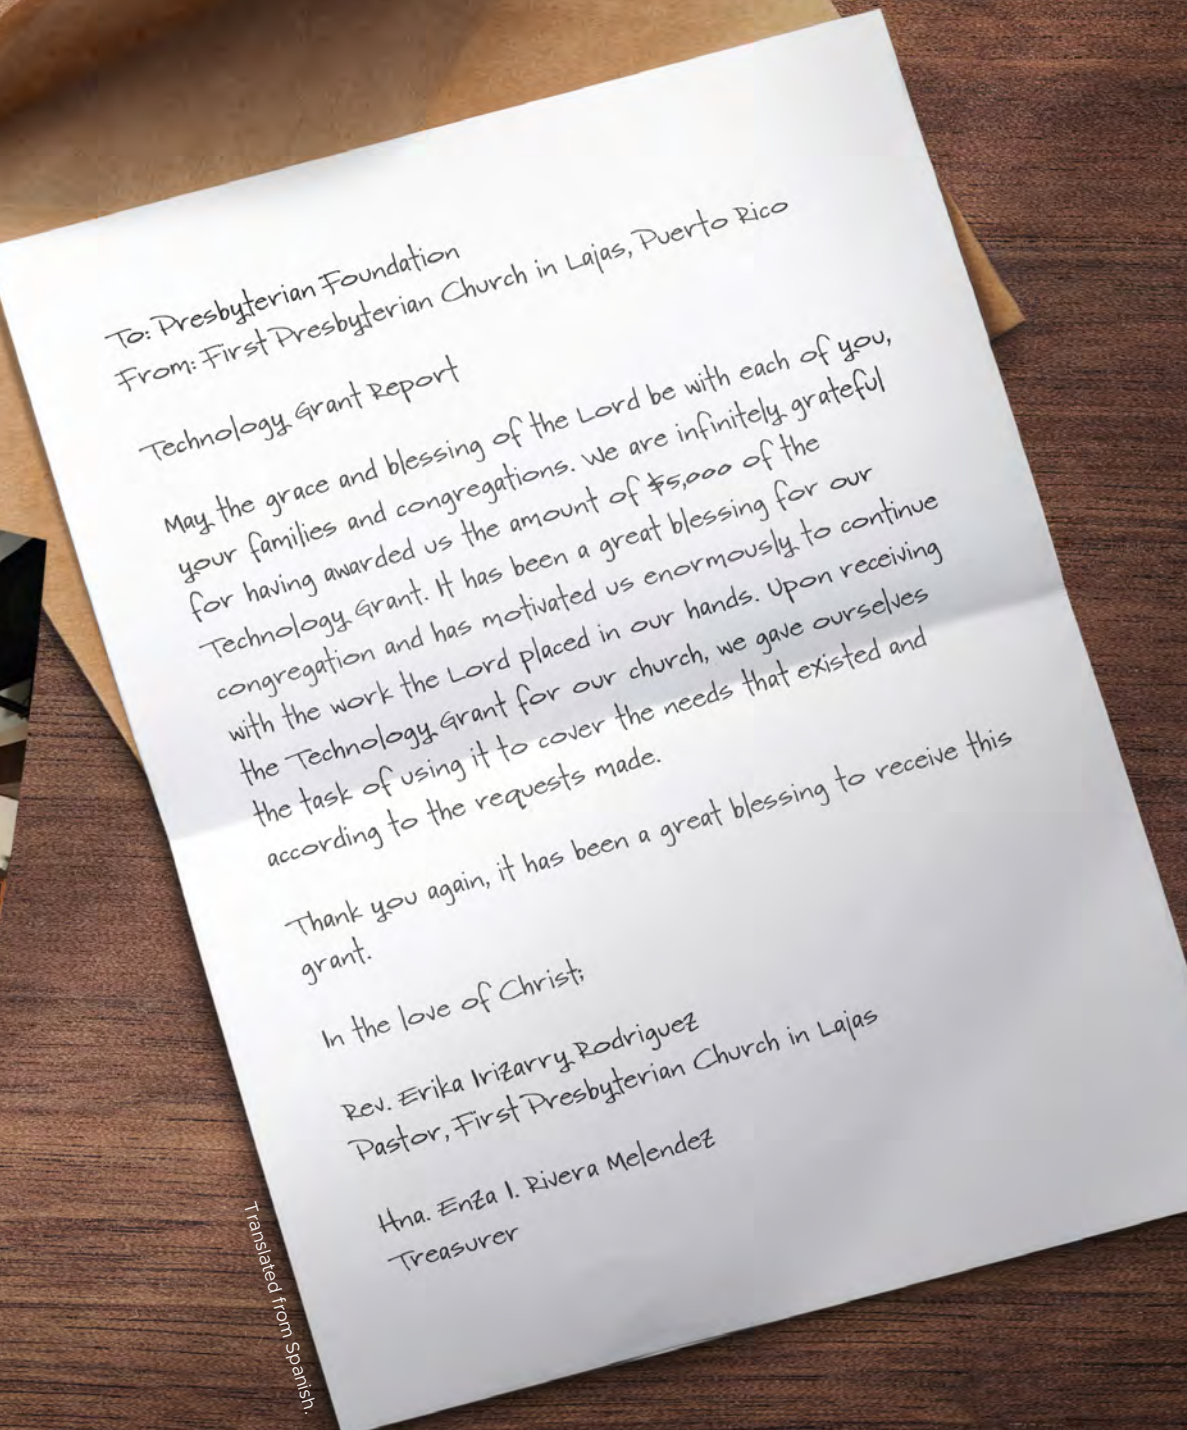 To: Presbyterian Foundation
From: First Presbyterian Church in Lajas, Puerto Rico
Technology Grant Report
May the grace and blessing of the Lord be with each of you,
your families and congregations. We are infinitely grateful
for having awarded us the amount of $5,000 of the
Technology Grant. It has been a great blessing for our
congregation and has motivated us enormously to continue
with the work the Lord placed in our hands. Upon receiving
the Technology Grant for our church, we gave ourselves
the task of using it to cover the needs that existed and
according to the requests made.
Thank you again, it has been a great blessing to receive this
grant.
In the love of Christ;
Rev. Erika Irizarry Rodriguez
Pastor, First Presbyterian Church in Lajas
Hna. Enza I. Rivera Melendez
Treasurer
Translated from Spanish.